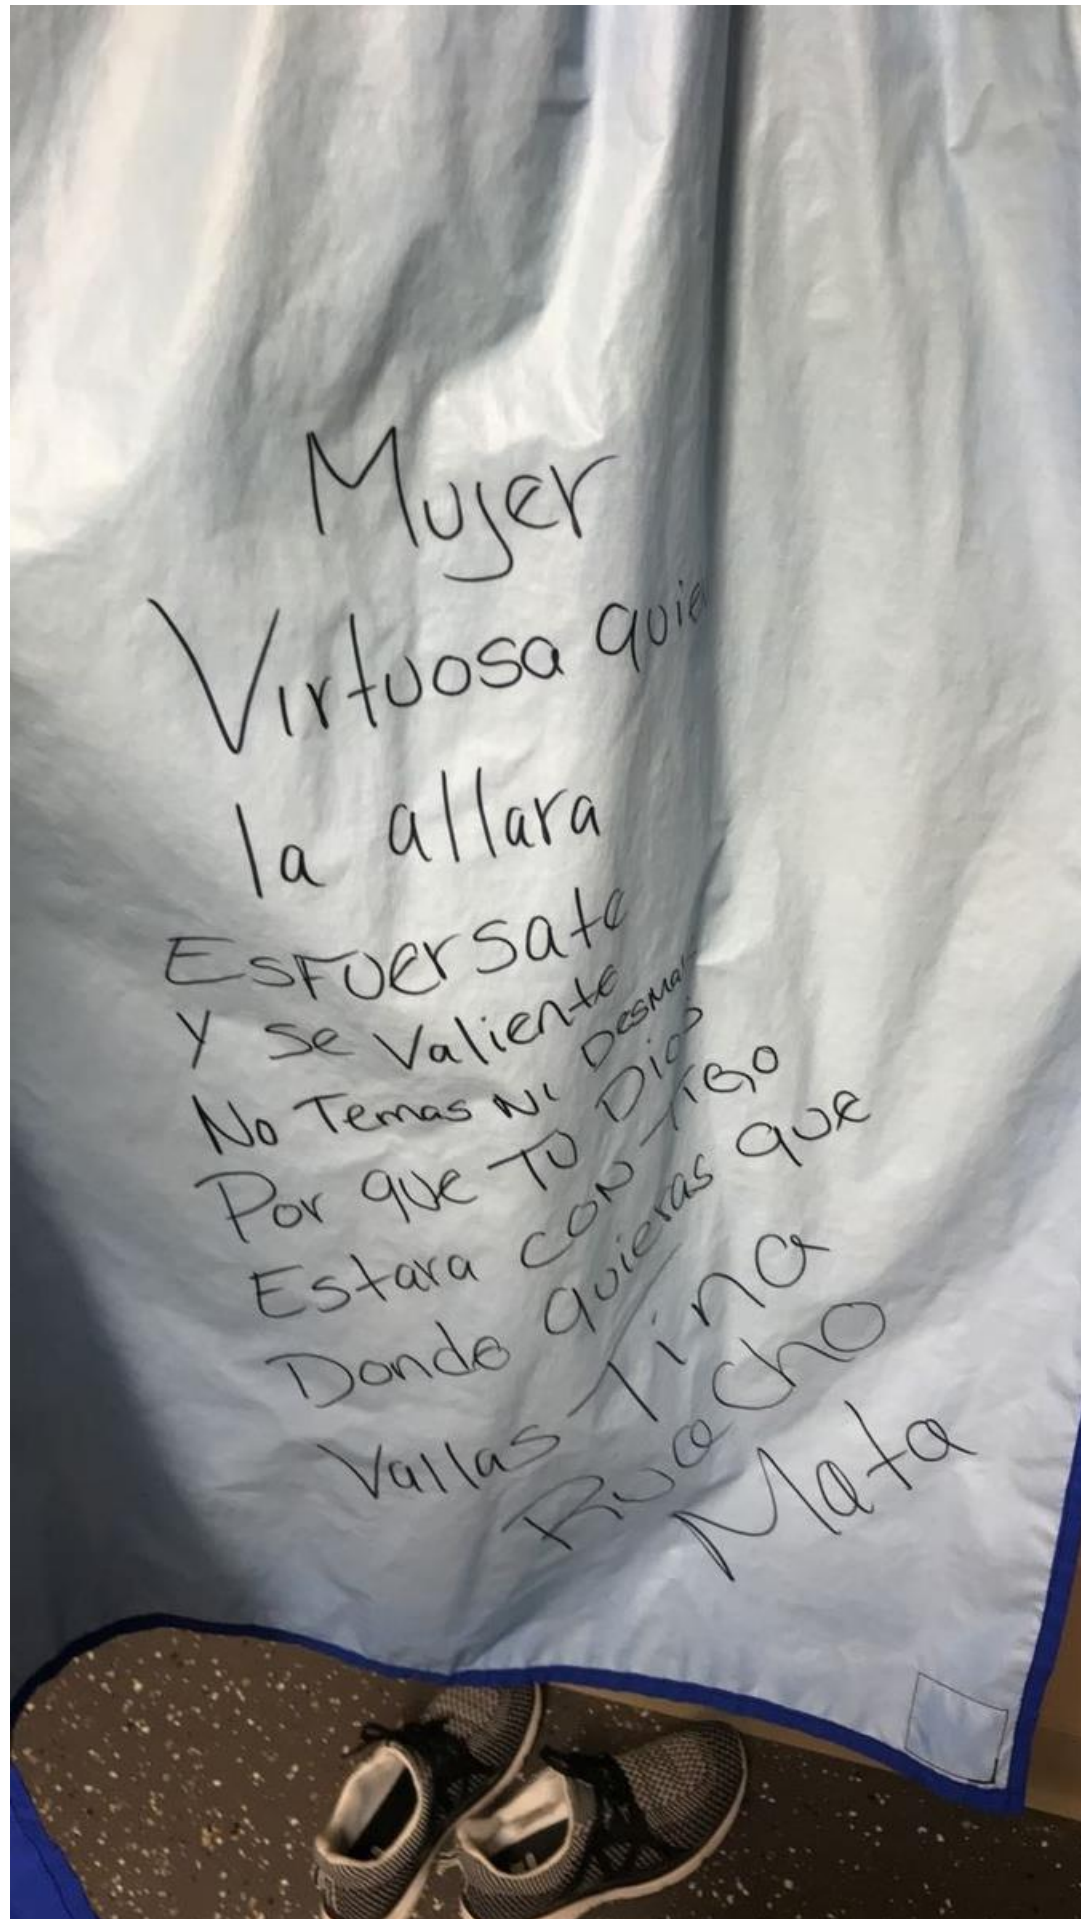 Mujer
Virtuosa quie
la allara
Esfuersate
y se valiente
No Temas Ni Desma
Por que TU Dios
Estara CON TIGO
Donde quieras que
Vallas Tina
Ruacho
Mata